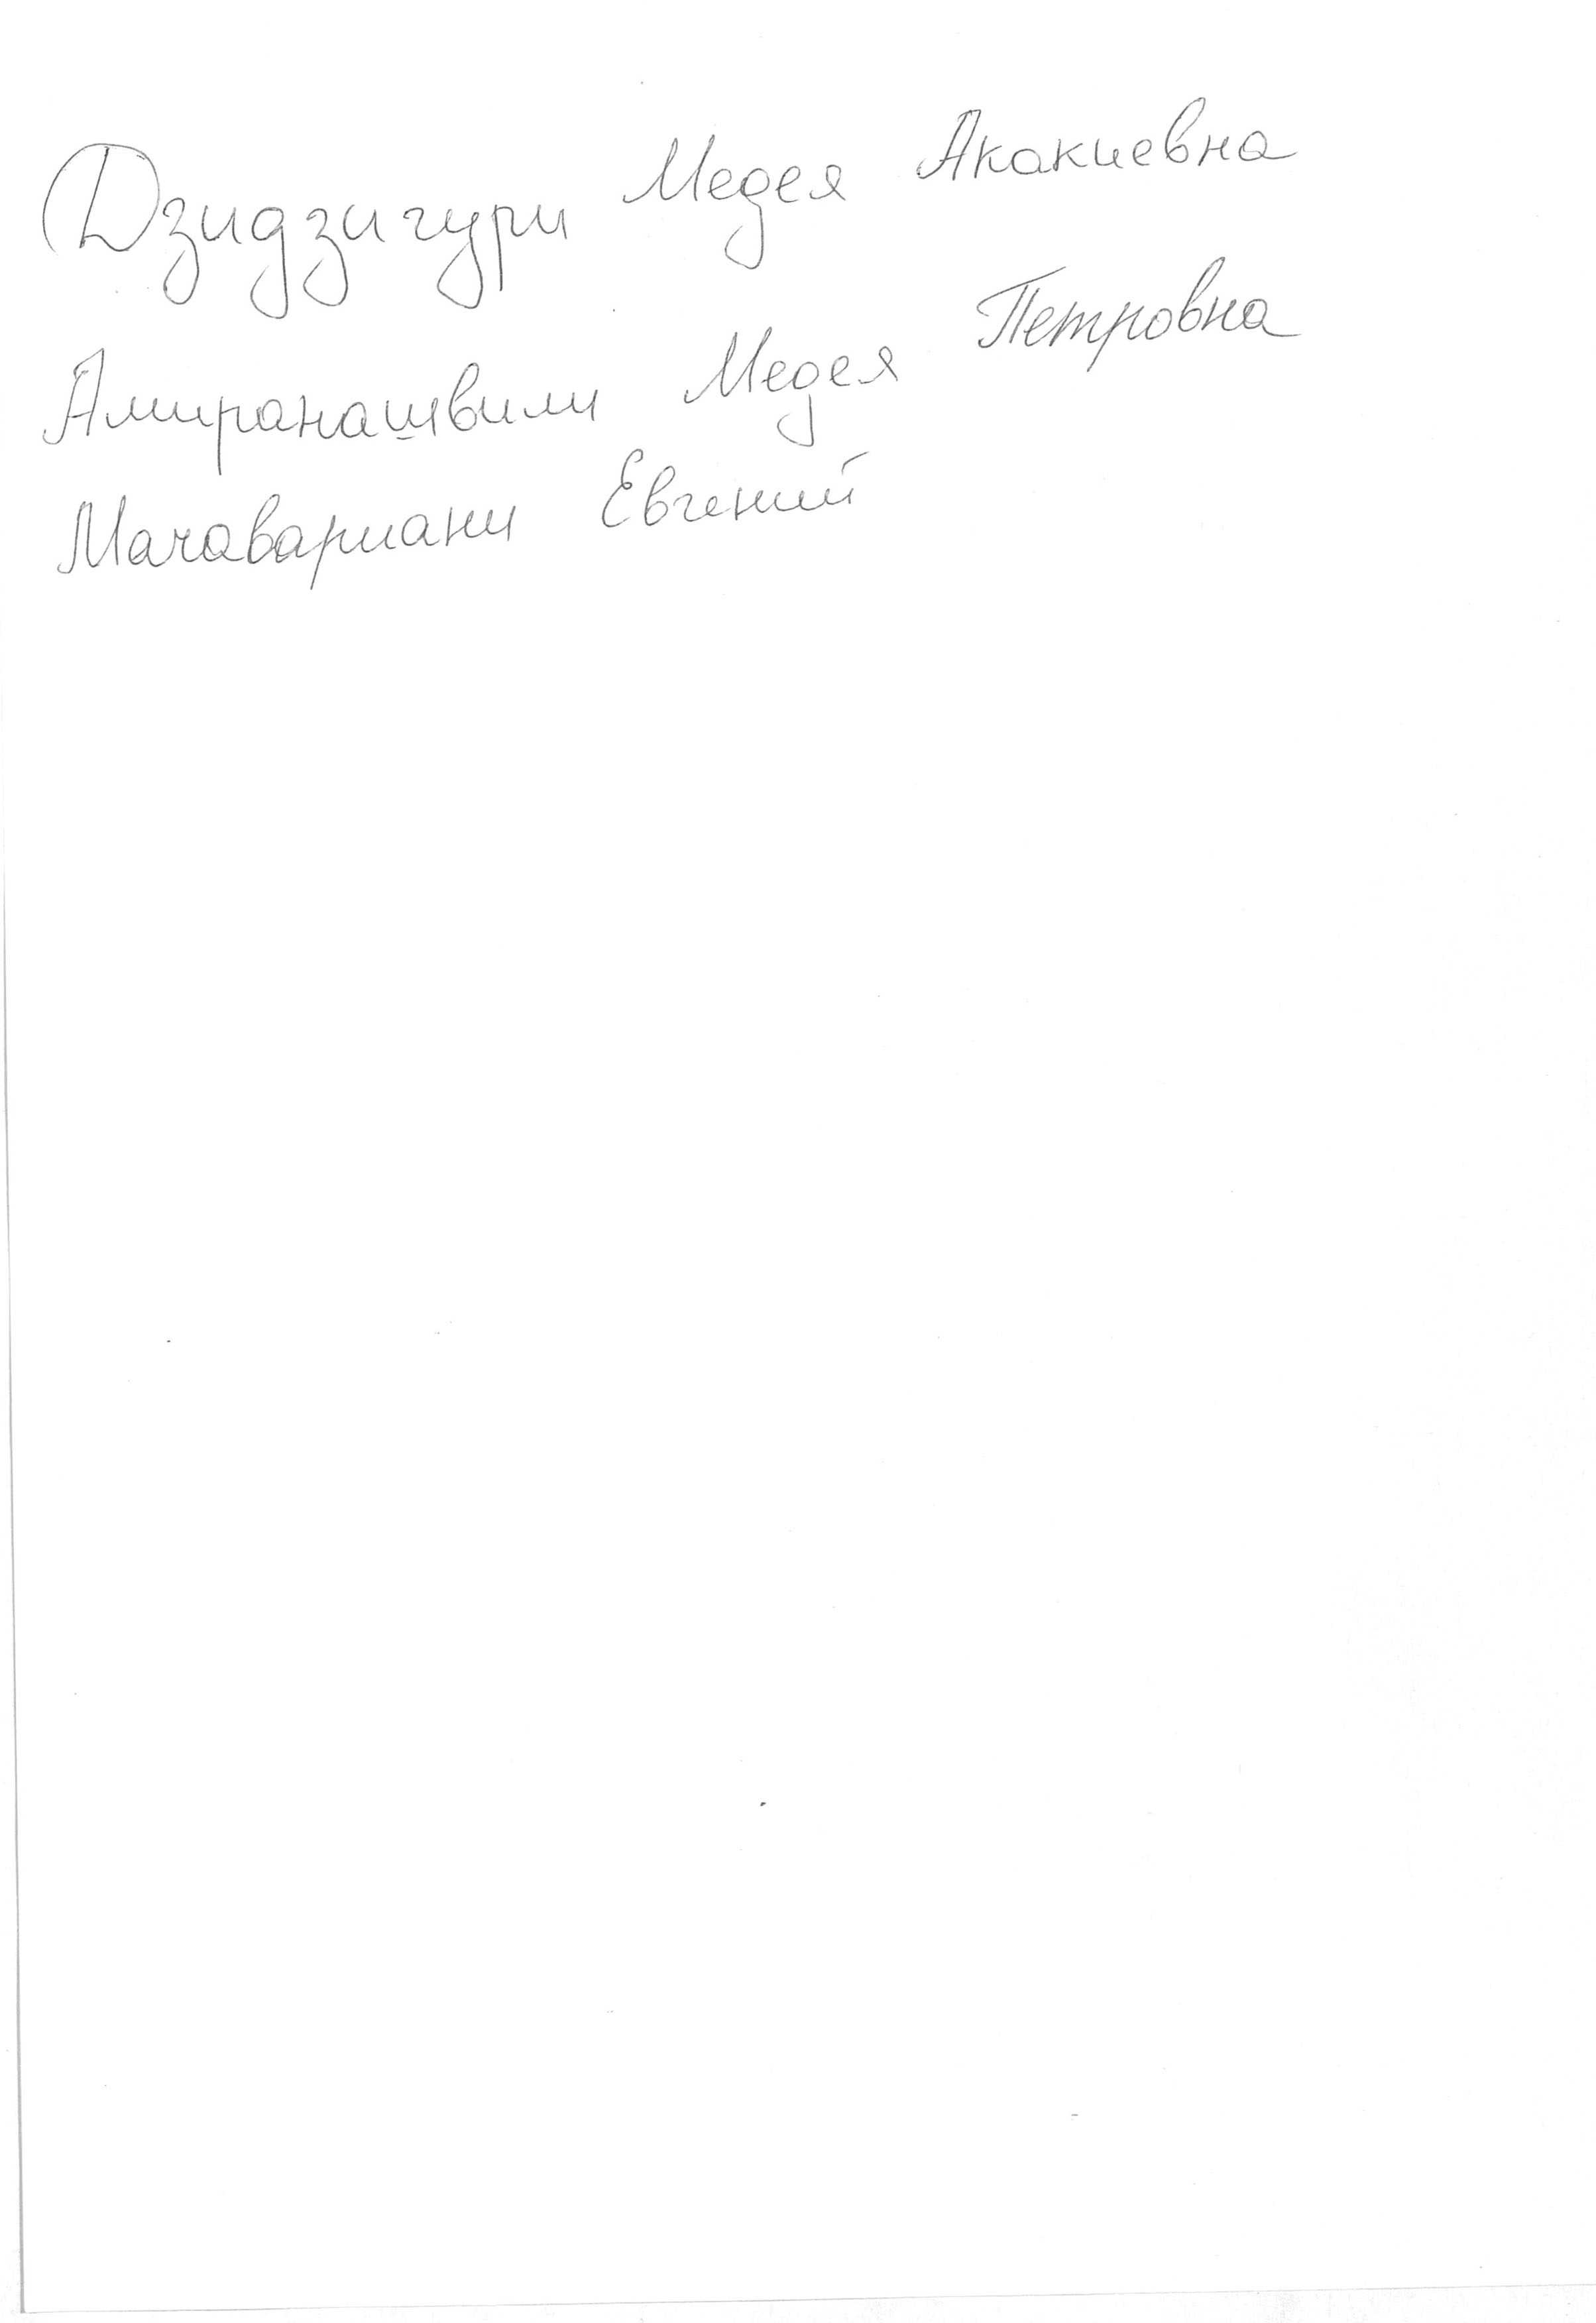 Дзидзигури Медея Акакиевна
Амиранашвили Медея Петровна
Мачавариани Евгений